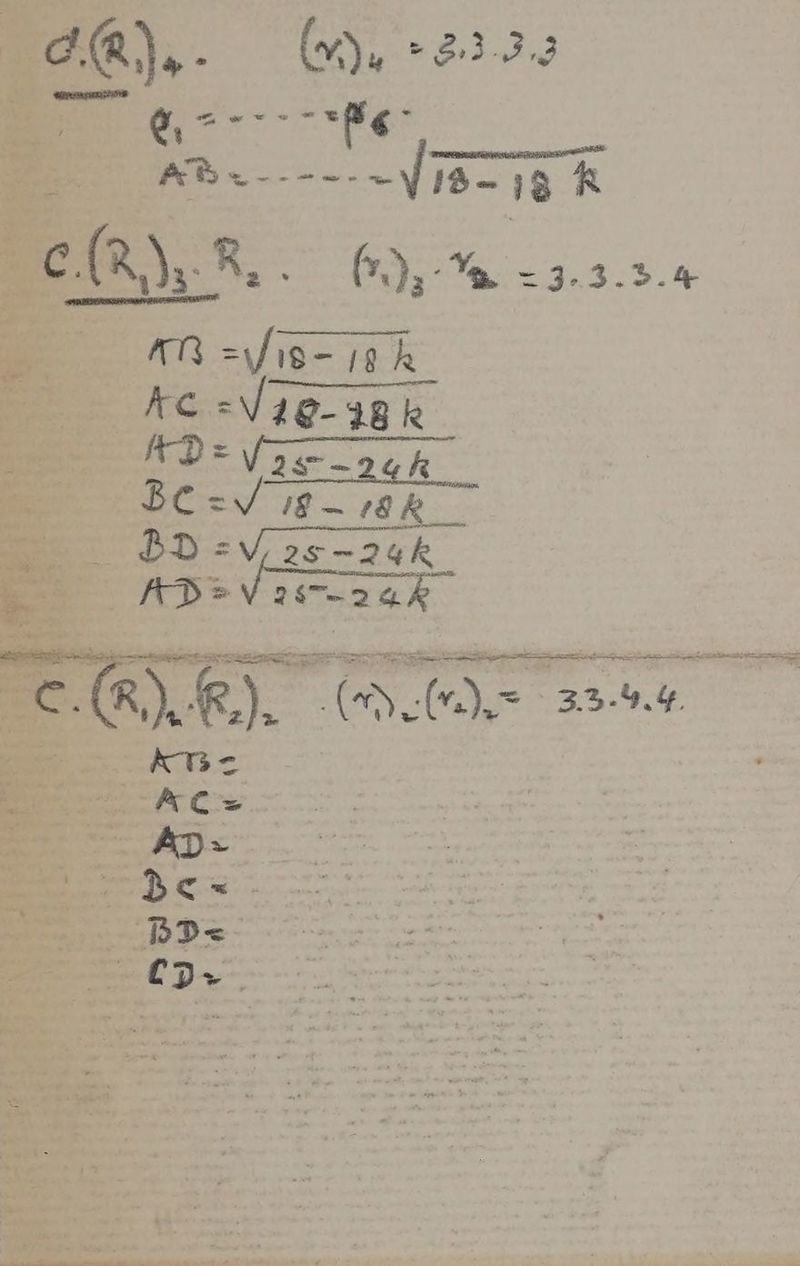 d.(R₁)₄. (r₁)₄ = 3.3.3.3
ρ₁ = - - - - - = ρ₆ -
AB = - - - - - - = √18 - 18 k
C.(R₁)₃.R₂. (r₁)₃.r₂ = 3.3.3.4
AB = √18 - 18 k
AC = √18 - 18 k
AD = √25 - 24k
BC = √18 - 18k
BD = √25 - 24k
AD = √25 - 24k
C.(R₁)₂.(R₂)₂ .(r₁)₂.(r₂)₂ = 3.3.4.4.
AB =
AC =
AD =
BC =
BD =
CD =